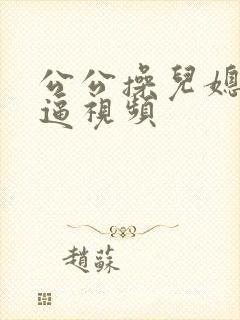 公公操兒媳
逼視頻
趙蘇